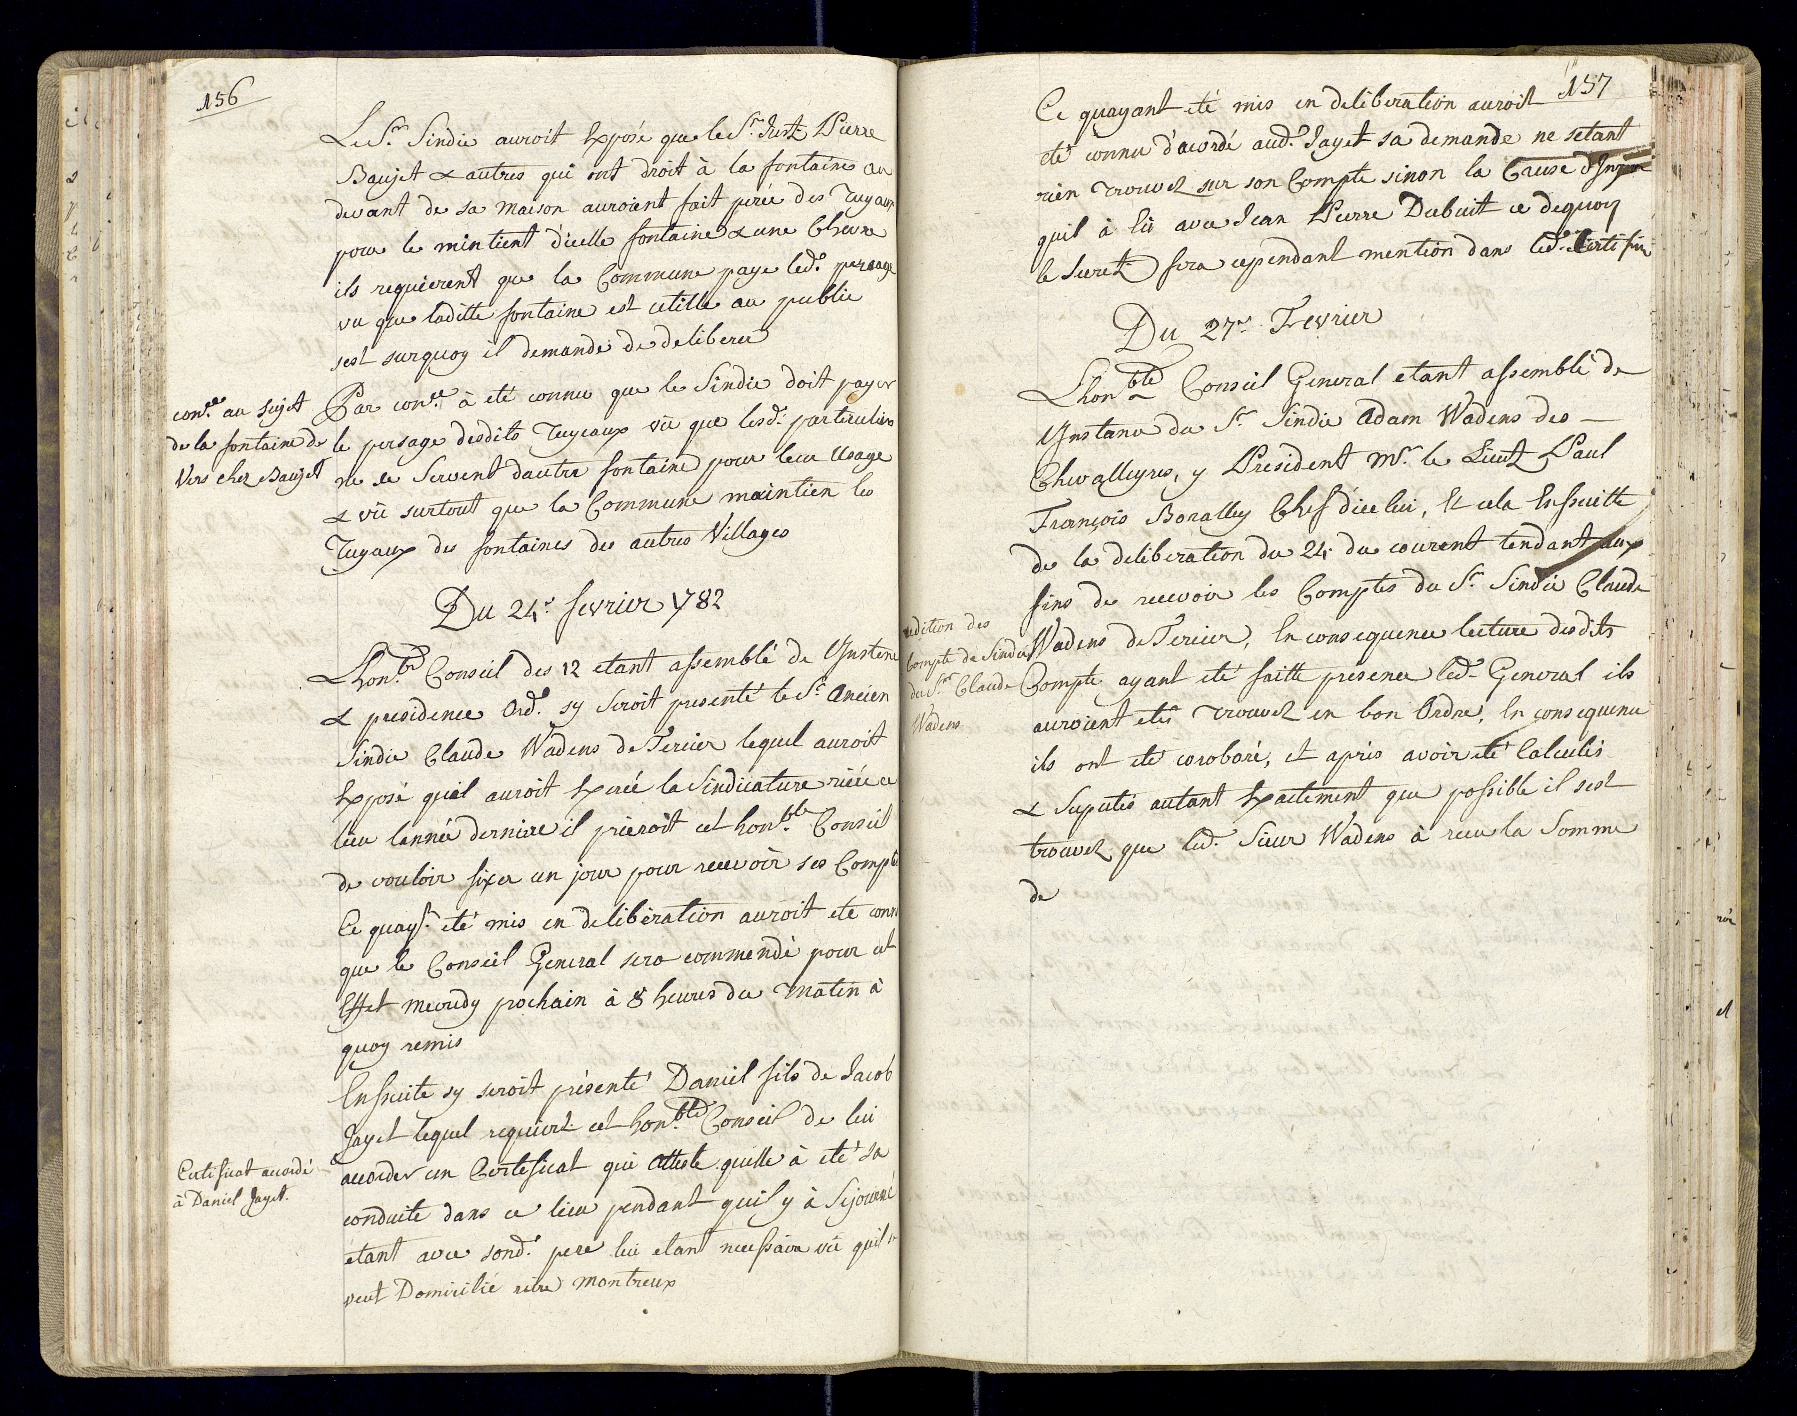 156
Le Sr. Sindic auroit Exposé que le Sr. Just. Pierre
Baujet & autres qui ont droit à la fontaine au
devant de sa maison auroient fait percée des Tuyaux
pour le mintient d'icelle fontaine & une Chevre
ils requierent que la Commune paye led. persage
vu que laditte fontaine est utille au public
sest surquoy il demande de deliberer
conce. au sujet
de la fontaine de
Vers chez Baujet
Par conce. à eté connu que le Sindic doit payer
le persage desdits Tuyeaux vû que lesd. particuliers
ne se Servent dautre fontaine pour leur Usage
& vû surtout que la Commune maintien les
Tuyaux des fontaines des autres Villages
Du 24e. fevrier 1782
Lhonble. Conseil des 12 etant assemblé de Ynstence
& presidence Ord. sy seroit presenté le Sr. Ancien
Sindic Claude Wadens de Tercier lequel auroit
Exposé quil auroit Exercée la Sindicature riére ce
lieu lannée derniere il prieroit cet honble. Conseil
de vouloir fixer un jour pour recevoir ses Comptes
Ce quayt. eté mis en deliberation auroit ete connu
que le Conseil General sera commendé pour cet
Effet mecredy prochain à 8 heures du matin à
quoy remis
Ensuite sy seroit présenté Daniel fils de Jacob
Jayet lequel requiert cet honble. Conseil de lui
accorder un Certeficat qui atteste quelle à eté sa
Certificat accordé
à Daniel Jayet.
conduite dans ce lieu pendant quil y à Sejourné
étant avec sond. pere lui etant necessaire vû quil
veut Domicilié riere Montreux
157
Ce quayant eté mis en deliberation auroit
eté connu d'acordé aud. Jayet sa demande ne setant
rien trouvez sur son Compte sinon la Cause
quil à eû avec Jean Pierre Dubuit ce dequoy
le Secret. fera cependant mention dans led. Certificat
Du 27e. Fevrier
Lhonble Conseil General etant assemblé de
Ynstance du Sr. Sindic Adam Wadens des
Chevalleyres, y President Mr. le Lieut. Paul
François Bonalley Chef d'icelui, Et cela Ensuitte
de la deliberation du 24. du courent tendant aux
fins de recevoir les Comptes du Sr. Sindic Claude
redition des
Compte de Sindic
du Sr. Claude
Wadens
Wadens de Tercier, En consequence lecture desdits
Compte ayant eté faitte presence led. General ils
auroient etés trouvez en bon Ordre, En consequence
ils ont eté coroboré, et aprés avoir eté Calculés
& Suputés autant Exactement que possible il sest
trouvez que led. Sieur Wadens à recu la Somme
de